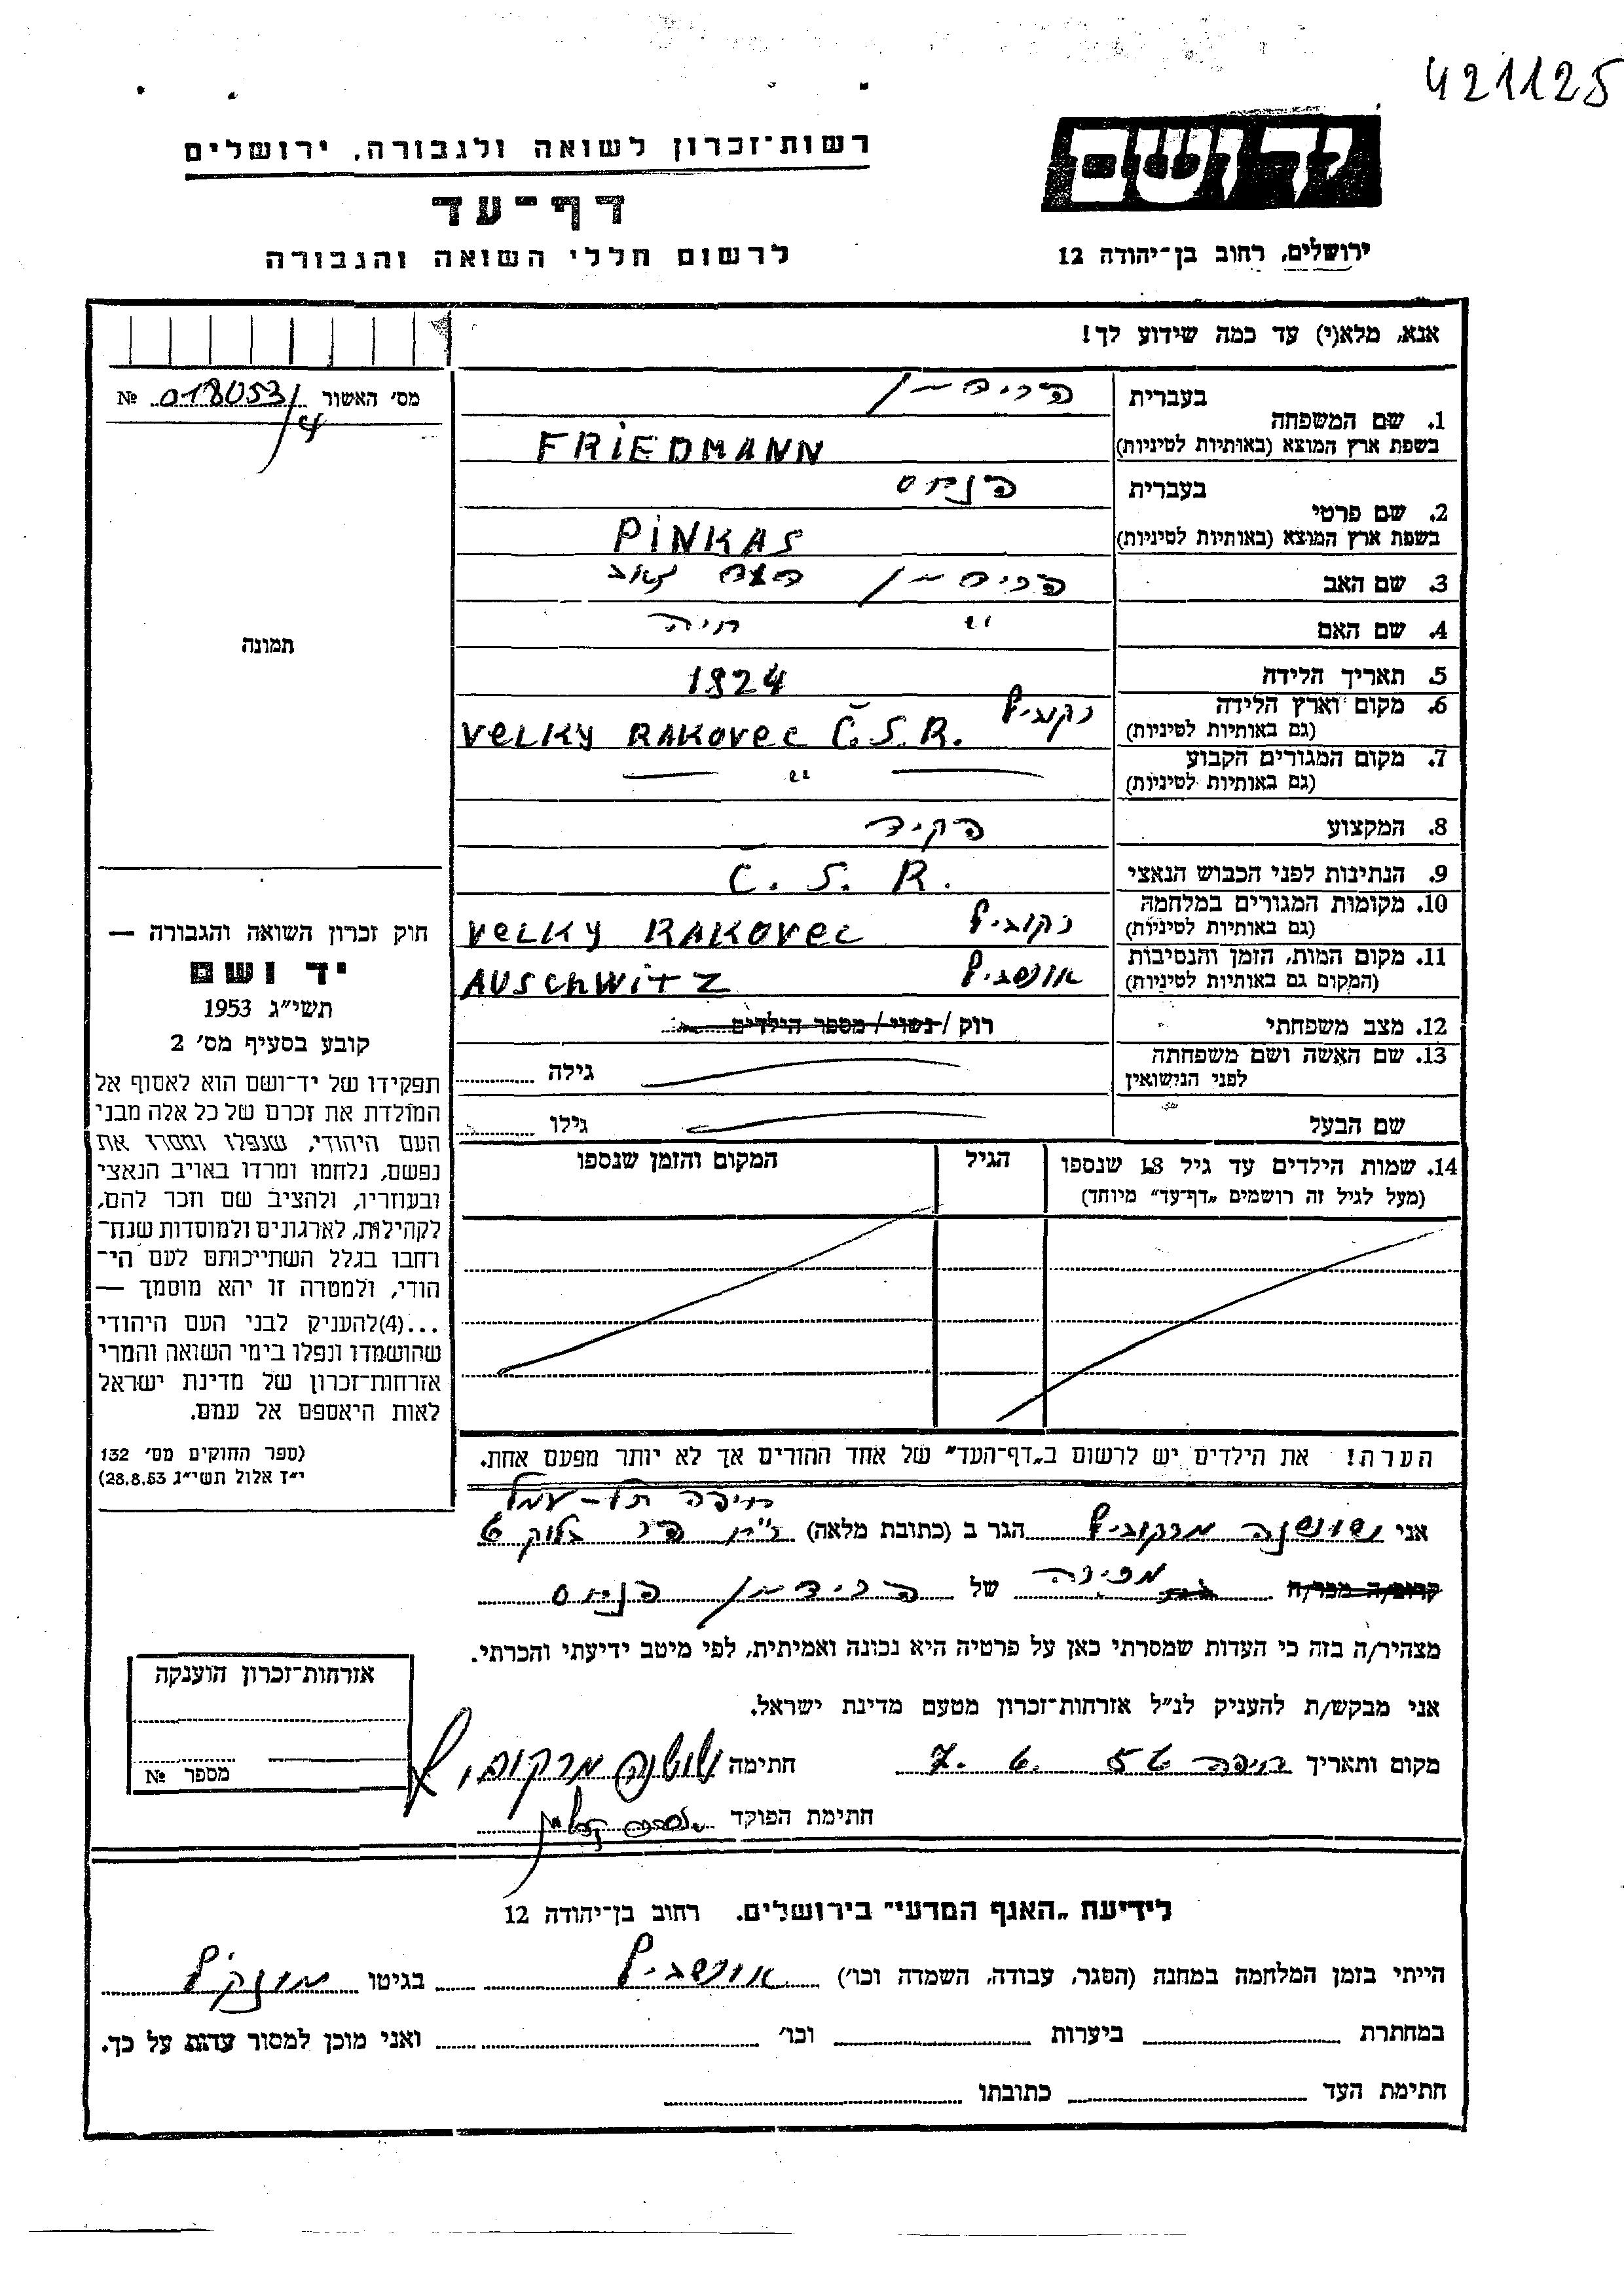 421125
יד ושם
ירושלים, רחוב בן־יהודה 12
רשות־זכרון לשואה ולגבורה, ירושלים
דף־עד
לרשום חללי השואה והגבורה
אנא, מלא(י) עד כמה שידוע לך!
מס׳ האשור 018053/4 №
תמונה
1. שם המשפחה
בעברית פרידמן
בשפת ארץ המוצא (באותיות לטיניות) FRIEDMANN
2. שם פרטי
בעברית פנחס
בשפת ארץ המוצא (באותיות לטיניות) PINKAS
3. שם האב פרידמן
4. שם האם " חיה
5. תאריך הלידה 1924
6. מקום וארץ הלידה רקוביץ
(גם באותיות לטיניות) VELKY RAKOVEC Č.S.R.
7. מקום המגורים הקבוע
(גם באותיות לטיניות) — " —
8. המקצוע פקיד
9. הנתינות לפני הכבוש הנאצי Č. S. R.
10. מקומות המגורים במלחמה רקוביץ
(גם באותיות לטיניות) VELKY RAKOVEC
11. מקום המות, הזמן והנסיבות אושביץ
(המקום גם באותיות לטיניות) AUSCHWITZ
12. מצב משפחתי רוק / נשוי / מספר הילדים
13. שם האשה ושם משפחתה
לפני הנישואין גילה
שם הבעל גילו
14. שמות הילדים עד גיל 18 שנספו הגיל המקום והזמן שנספו
(מעל לגיל זה רושמים „דף־עד״ מיוחד)
חוק זכרון השואה והגבורה —
יד ושם
תשי״ג 1953
קובע בסעיף מס׳ 2
תפקידו של יד־ושם הוא לאסוף אל
המולדת את זכרם של כל אלה מבני
העם היהודי, שנפלו ומסרו את
נפשם, נלחמו ומרדו באויב הנאצי
ובעוזריו, ולהציב שם וזכר להם,
לקהילות, לארגונים ולמוסדות שנח־
רחבו בגלל השתייכותם לעם הי־
הודי, ולמטרה זו יהא מוסמך —
...(4)להעניק לבני העם היהודי
שהושמדו ונפלו בימי השואה והמרי
אזרחות־זכרון של מדינת ישראל
לאות היאספם אל עמם.
(ספר החוקים מס׳ 132
י״ז אלול תשי״ג 28.8.53)
הערה! את הילדים יש לרשום ב„דף־העד״ של אחד ההורים אך לא יותר מפעם אחת.
חיפה תל-עמל
אני שושנה מרקוביץ הגר ב (כתובת מלאה) בלוק 6
קרוב/ה מכר/ה מכירה של פרידמן פנחס
מצהיר/ה בזה כי העדות שמסרתי כאן על פרטיה היא נכונה ואמיתית, לפי מיטב ידיעתי והכרתי.
אני מבקש/ת להעניק לנ״ל אזרחות־זכרון מטעם מדינת ישראל.
מקום ותאריך חיפה 7. 6. 56 חתימה שושנה מרקוביץ
חתימת הפוקד
אזרחות־זכרון הוענקה
מספר №
לידיעת „האגף המדעי״ בירושלים. רחוב בן־יהודה 12
הייתי בזמן המלחמה במחנה (הסגר, עבודה, השמדה וכו׳) אושביץ בגיטו מונקץ
במחתרת ביערות וכו׳ ואני מוכן למסור עדות על כך.
חתימת העד כתובתו